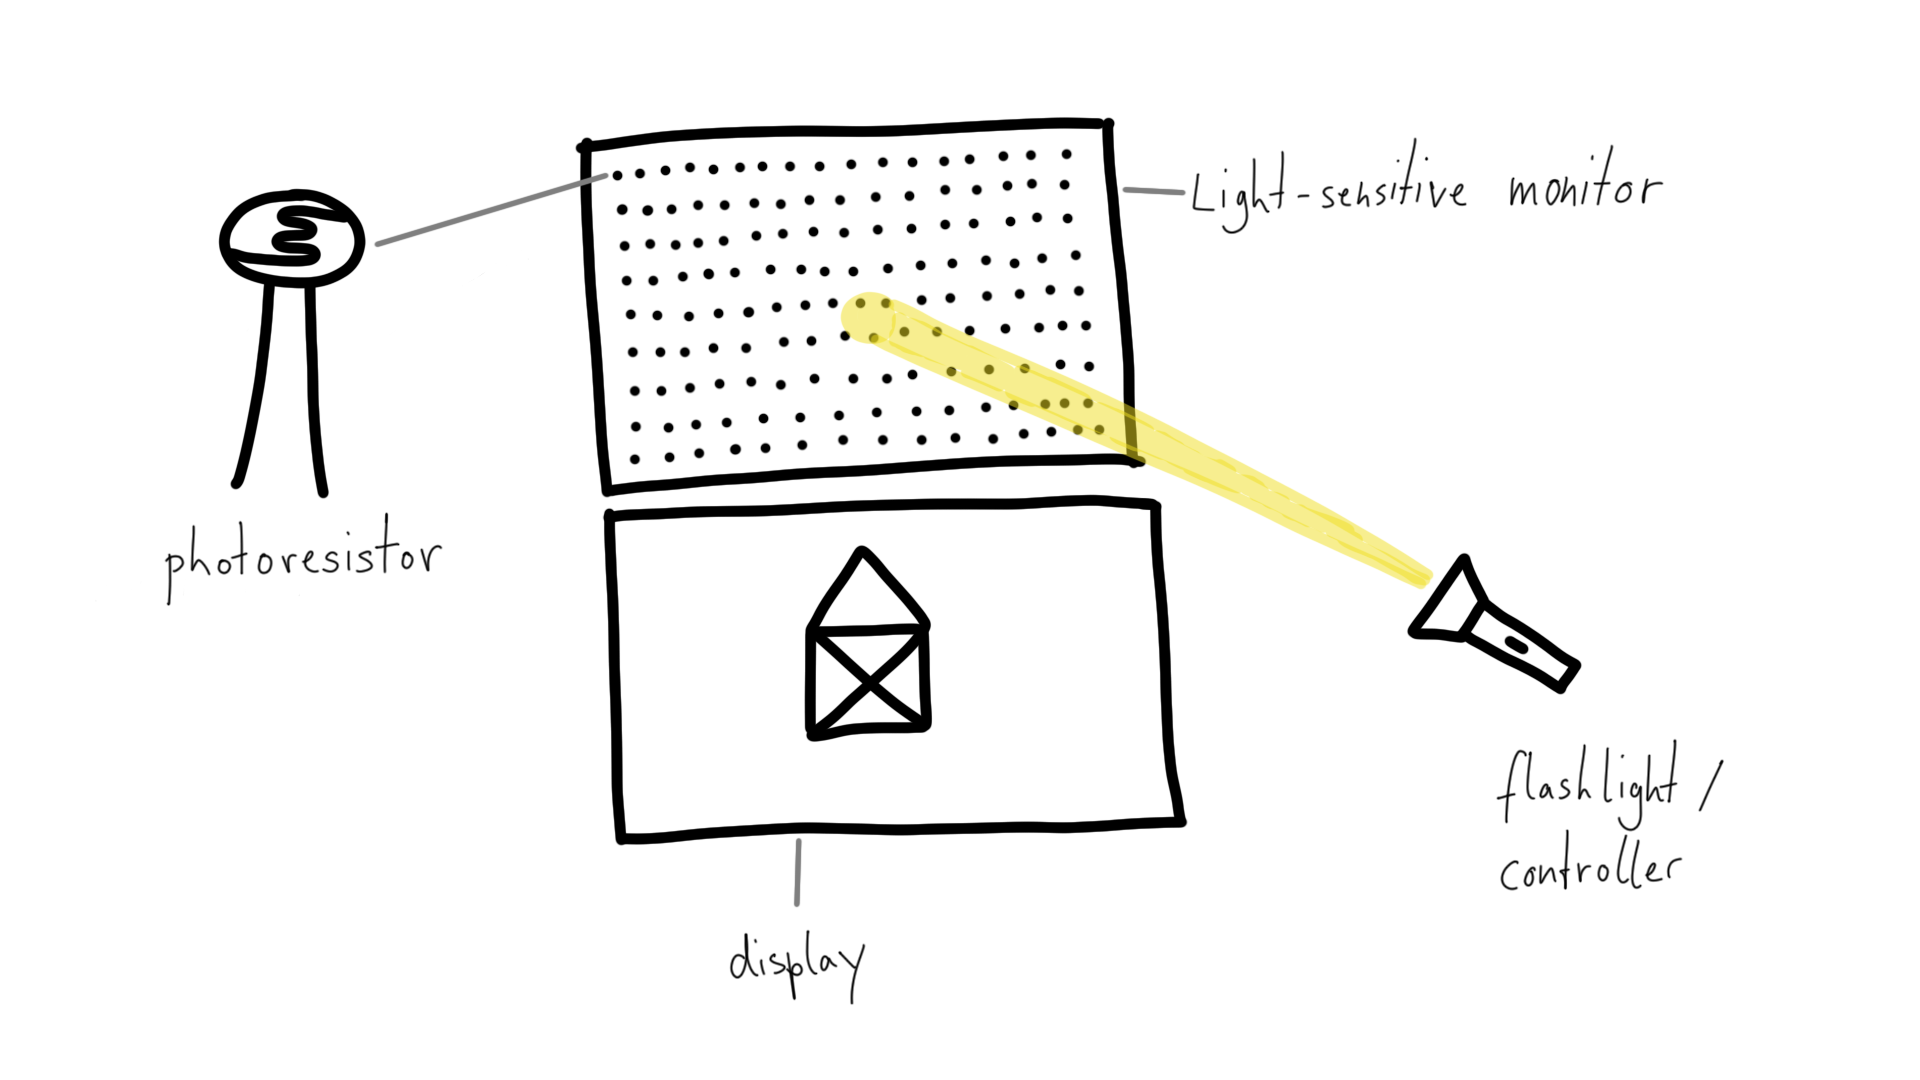 Light-sensitive monitor
photoresistor
flashlight /
controller
display